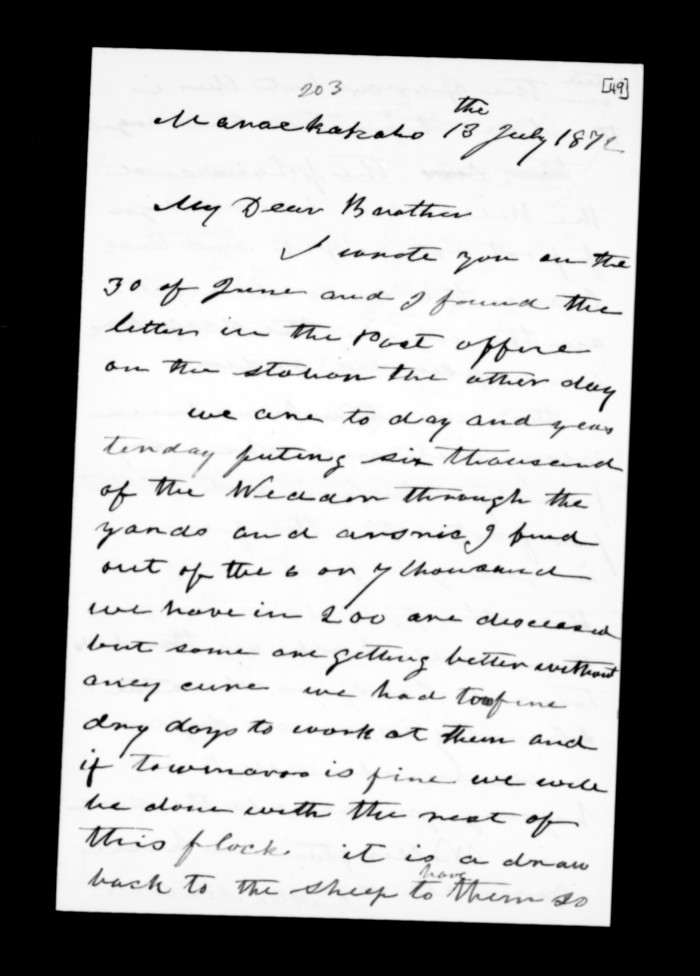 [49]
203
Manaekakaho 13 the July 187
My Dear Brother
I wrote you on the
30 of June and I found the
letter in the Post offire
on the station the other day
we are to day and yeas
tenday puteng six thousand
of the Weddon through the
yards and arsnic I find
out of the 6 or 7 thousand
we have in 200 are deseased
but some are getting better without
aney cure we had too fine
dry days to work at them and
if towmaroo is fine we will
be done with the rest of
this flock. it is a draw
back to the sheep to have them so